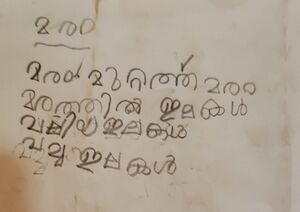 മരം
മരം മുറ്റത്ത് മരം
മരത്തിൽ ഇലകൾ
വലിയ ഇലകൾ
പച്ച ഇലകൾ